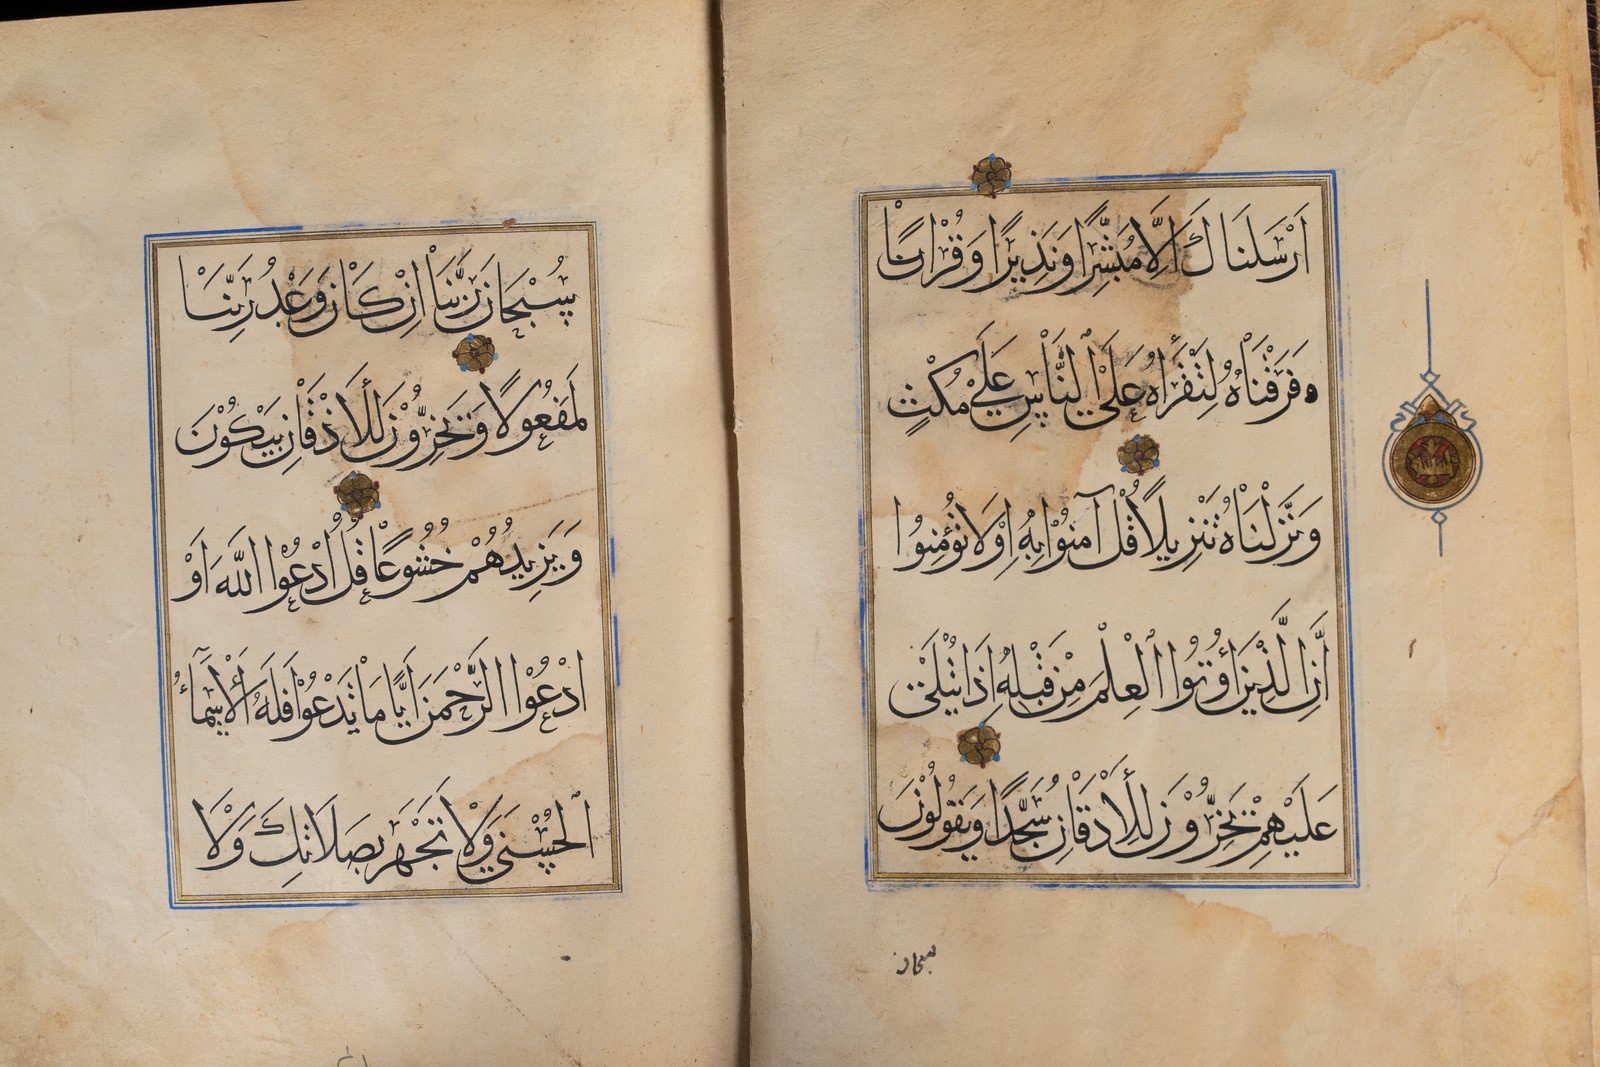 اَرْسَلنَاكَ اِلَّا مُبَشِّرًا وَنَذِيرًا وَقُرْاٰنًا
فَرَقْنَاهُ لِتَقْرَأَهُ عَلَى النَّاسِ عَلَى مُكْثٍ
وَنَزَّلْنَاهُ تَنْزِيلًا قُلْ آمَنُوْا بِهِ اَوْلَا تُؤْمِنُوا
اِنَّ الَّذِيْنَ اُوتُوا الْعِلْمَ مِنْ قَبْلِهِ اِذَا يُتْلَى
عَلَيْهِمْ يَخِرُّوْنَ لِلْاَذْقَانِ سُجَّدًا وَيَقُولُوْنَ
سبحان
سُبْحَانَ رَبِّنَا اِنْ كَانَ وَعْدُ رَبِّنَا
لَمَفْعُولًا وَيَخِرُّوْنَ لِلْاَذْقَانِ يَبْكُوْنَ
وَيَزِيدُهُمْ خُشُوْعًا قُلِ ادْعُوْا اللّٰهَ اَوْ
ادْعُوْا الرَّحْمٰنَ اَيًّا مَا تَدْعُوْا فَلَهُ الْاَسْمَآءُ
الْحُسْنٰى وَلَا تَجْهَرْ بِصَلَاتِكَ وَلَا